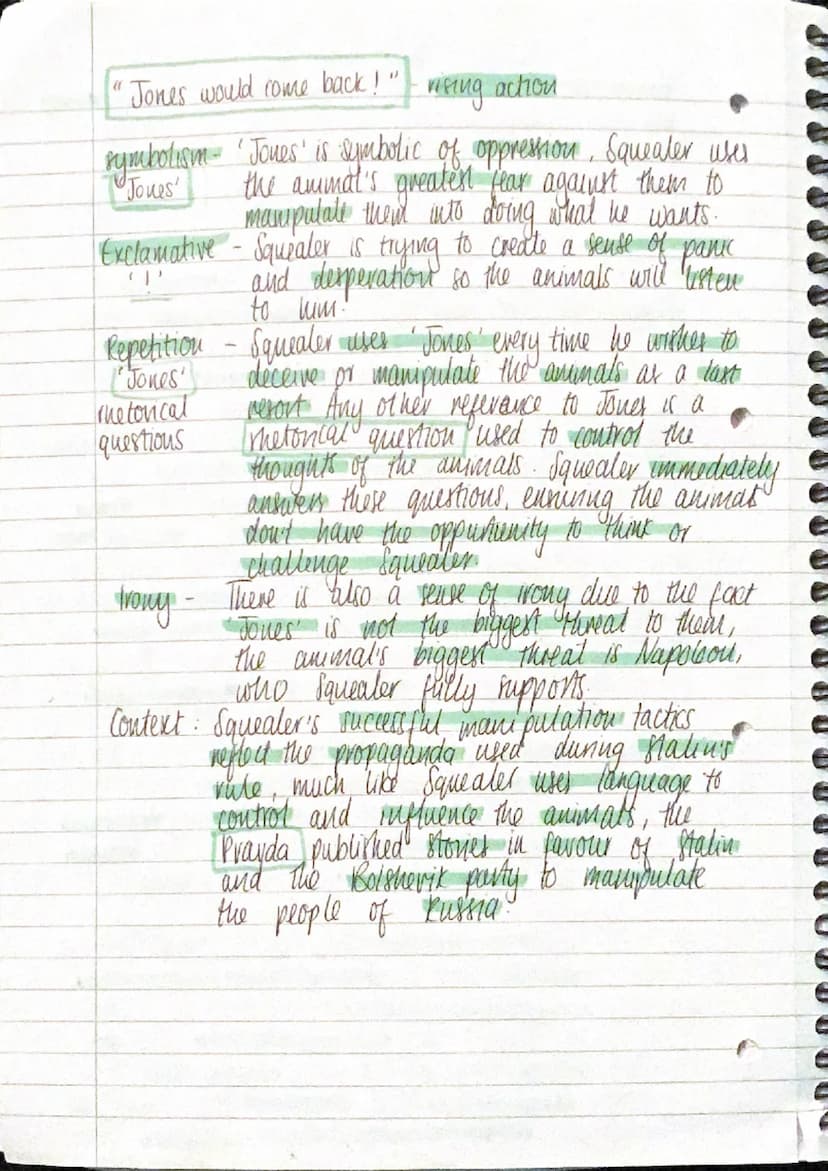 "Jones would come back!" - rising action
symbolism - 'Jones' is symbolic of oppression. Squealer uses
'Jones' the animal's greatest fear against them to
manipulate them into doing what he wants.
Exclamative - Squealer is trying to create a sense of panic
'!' and desperation so the animals will listen
to him.
Repetition - Squealer uses 'Jones' every time he wishes to
'Jones' deceive or manipulate the animals as a last
rhetorical resort. Any other referance to Jones is a
questions rhetorical question used to control the
thoughts of the animals. Squealer immediately
answers these questions, ensuring the animals
don't have the oppurtunity to think or
challenge Squealer.
Irony - There is also a sense of irony due to the fact
'Jones' is not the biggest threat to them,
the animal's biggest threat is Napoleon,
who Squealer fully supports.
Context: Squealer's successful manipulation tactics
reflect the propaganda used during Stalin's
rule, much like Squealer uses language to
control and influence the animals, the
Pravda published stories in favour of Stalin
and the Bolshevik party to manipulate
the people of Russia.